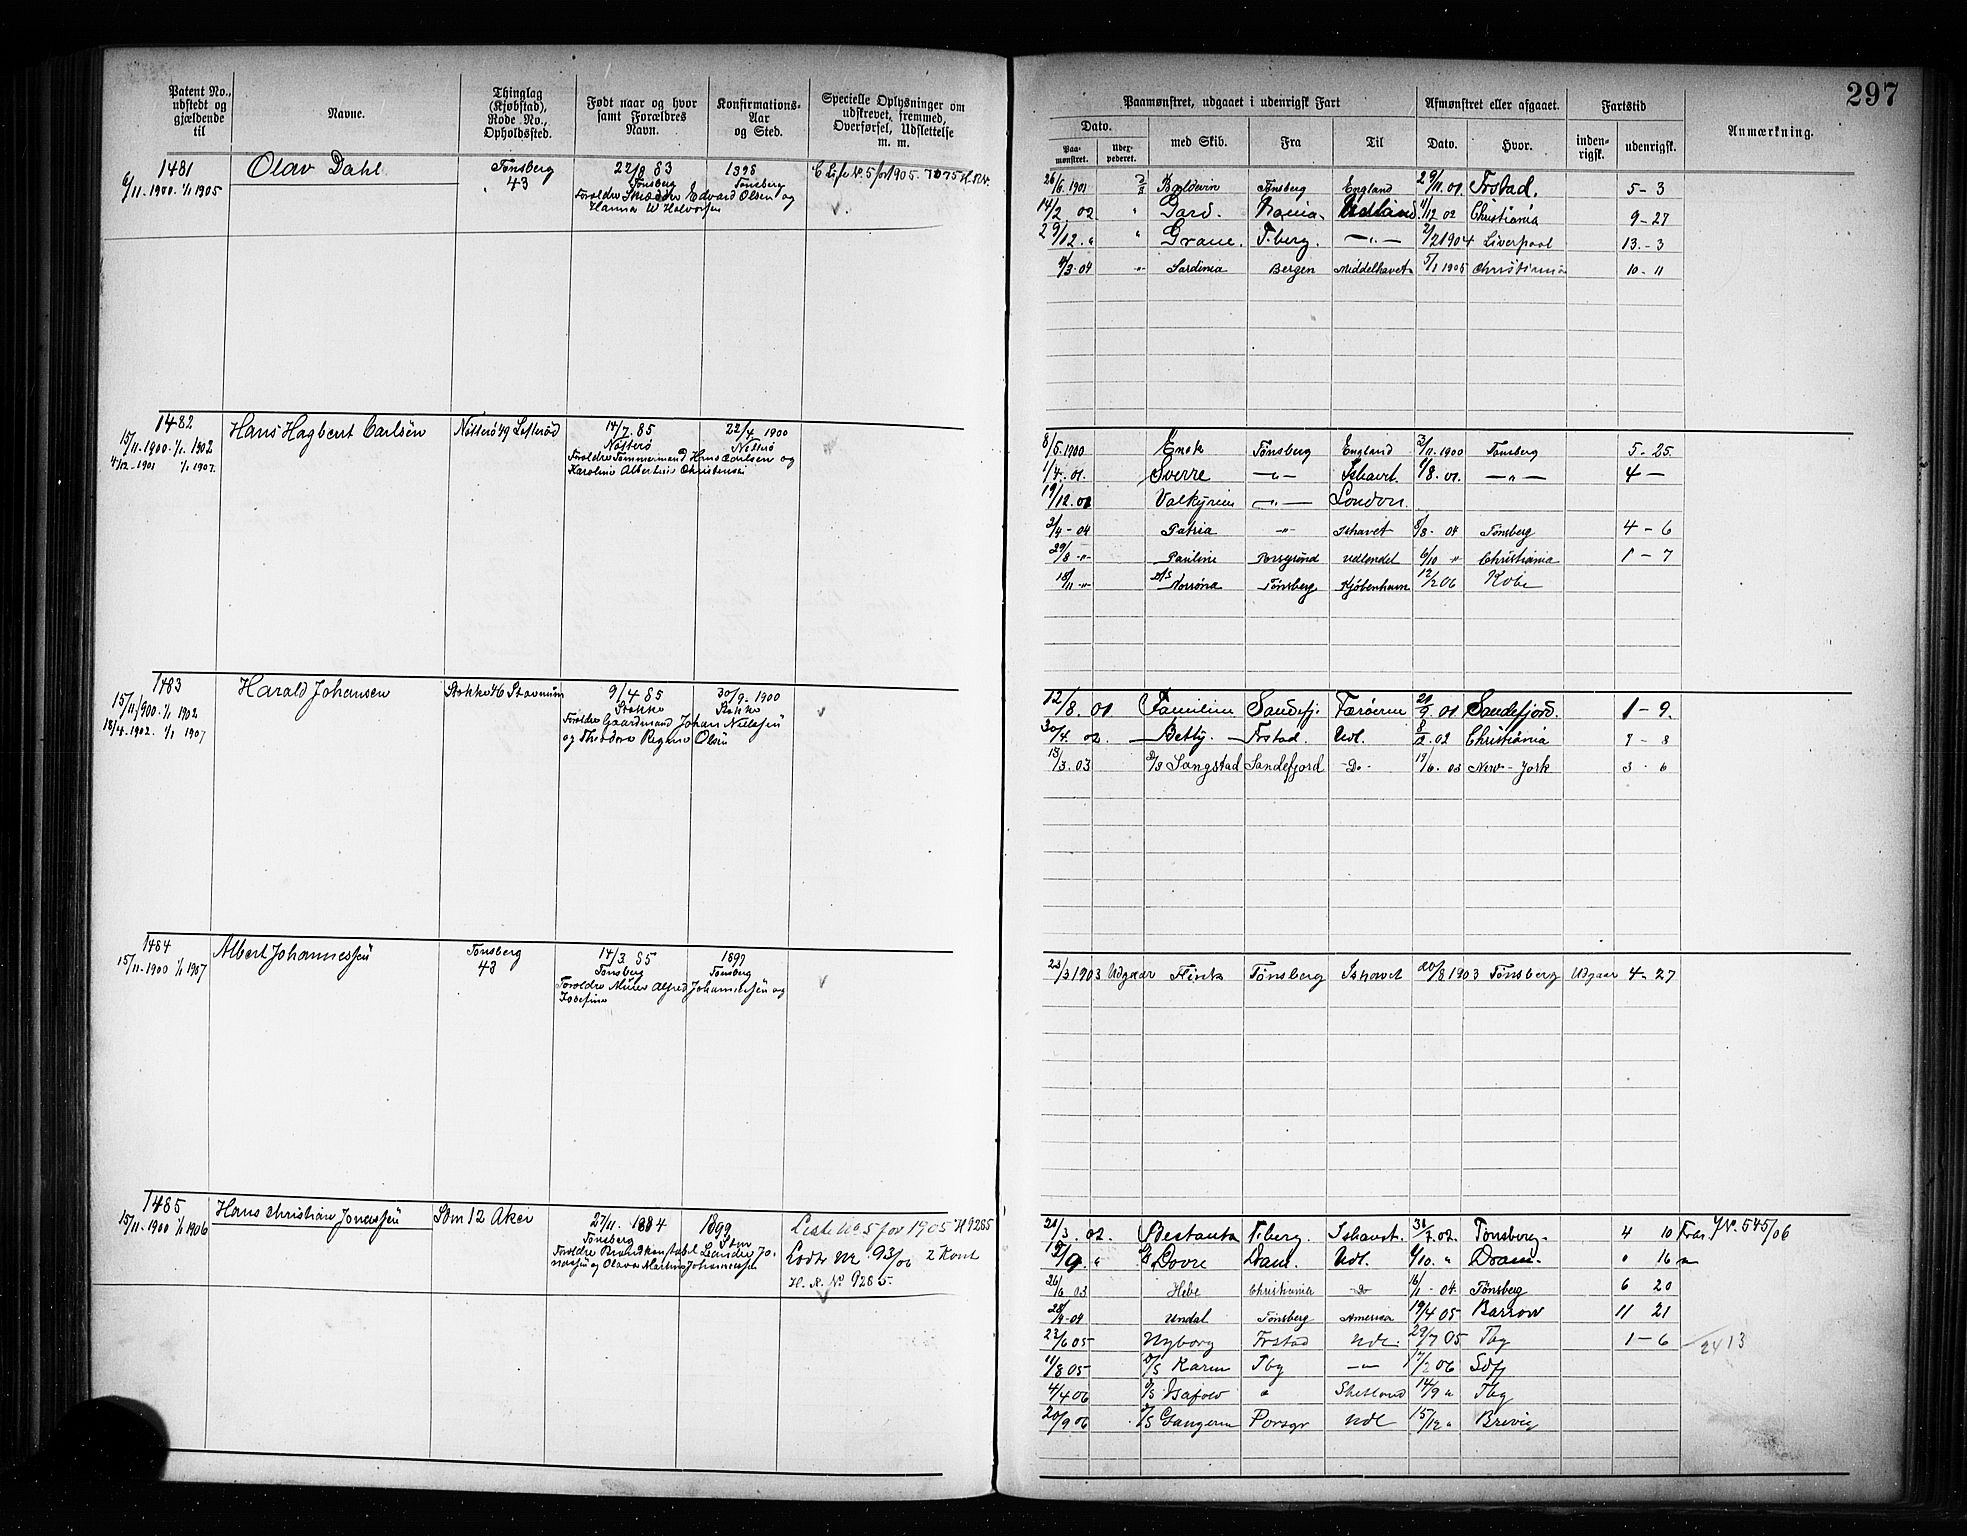 297
Patent No., udstedt og gjældende til
Navne.
Thinglag (Kjøbstad), Rode No., Opholdssted.
Født naar og hvor samt Forældres Navn.
Konfirmations- Aar og Sted.
Specielle Oplysninger om udskrevet, fremmed, Overførsel, Udslettelse m. m.
Paamønstret, udgaaet i udenrigsk Fart
Afmønstret eller afgaaet.
Fartstid
Anmærkning.
Dato.
Paa- mønstret.
med Skib.
Fra
Til
Dato.
Hvor.
inden- rigsk.
udenrigsk.
1481
6/11.1900. 1/1 1905
Olav Dahl
Tønsberg
43
22/8 83
Tønsberg
Edvard Olsen og
Hanna W Halvorsen
Tønsberg
26/6 1901 Balduin Tønsberg England 29/11.01. Frstad. 5-3
14/2.02 " Gard. Udland. 11/12 02 Christiania 9-27
29/12." " Grane. T.berg. —"— 2/2 1904 Liverpool 13.-3
4/3.04 " Sardinia Bergen Middelhavet 5/1 1905 Christiania 10-11
1482
15/11.1900. 1/1 1902
4/12.1901 1/1 1907.
Hans Hagbert Carlsen
Nøtterø 49
14/7.85
Nøtterø
Forældre Tømmermand Hans Carlsen og
Karoline Albertine
22/4 1900
Nøtterø
8/5.1900 Tønsberg England 3/11.1900 Tønsberg 5-25.
1/4.01. Sverre —"— Ishavet. 1/8.01. —"— 4—
19/12.01 Valkyrien —"— London.
2/4-04 Patria —"— Ishavet 8/8-04 Tønsberg 4-6
29/8-" Pauline Porsgrund udlandet 6/10 " Christiania 1-7
18/11-" D/S Norrøna Tønsberg Kjøbenhavn 12/2 06 Kobe
1483
15/11.1900. 1/1 1902
18/4.1902. 1/1 1907
Harald Johansen
Stokke 46
9/4 85
Stokke
Forældre Gaardmand Johan Nielssen
og Theodora Regine Olsen
30/9.1900
Stokke
12/8.01 Familien Sandefj. Færøerne 20/9.01 Sandefjord. 1-9.
30/4.02 Betty. Frstad. Udl. 8/2.02 Christiania 9-8
18/3.03 D/S Songstad Sandefjord -Do- 19/6.03 New-York 3-6
1484
15/11-1900 1/1 1907
Albert Johannessen
Tønsberg
43
14/3.85
Tønsberg
Forældre Murer Alfred Johannessen og
Josefine
1899
Tønsberg
23/3 1903 Udgaar Flink Tønsberg Ishavet 20/8 1903 Tønsberg Udgaar 4-27
1485
15/11-1900 1/1 1906
Hans Christian Jonassen
Sem 12 Aker
27/11.1884
Tønsberg
Forældre Brandkonstabel Leander Jo-
nassen og Olava Martine Johannessen
1899
Sem
Liste No 5 for 1905 H 9285
Lods Nr 93/06 2 Kont
H. R. No 9285.
21/3.02. Bestanda T.berg. Ishavet. 31/7.02. Tønsberg. 4 10 Fra. J No. 545/06
15/9." D/S Dovre Dram. Udl. 6/10." Dram. " 16
26/6 03 Hebe Christiania Do 16/1-04. Tønsberg 6 20
28/4-04 Undal Tønsberg Amerika 19/4 05 Barrow 11 21
22/6 05 Nyborg Frstad Udl. 29/7 05 Tbg 1-6 24 13
11/8 05 D/S Karin Tbg —"— 17/2 06 Sdfj
4/4 06 D/S Isafold " Shetland 14/9 " Tbg
20/9 06 D/S Gangeren Porsgr Udl 15/12 " Brevig